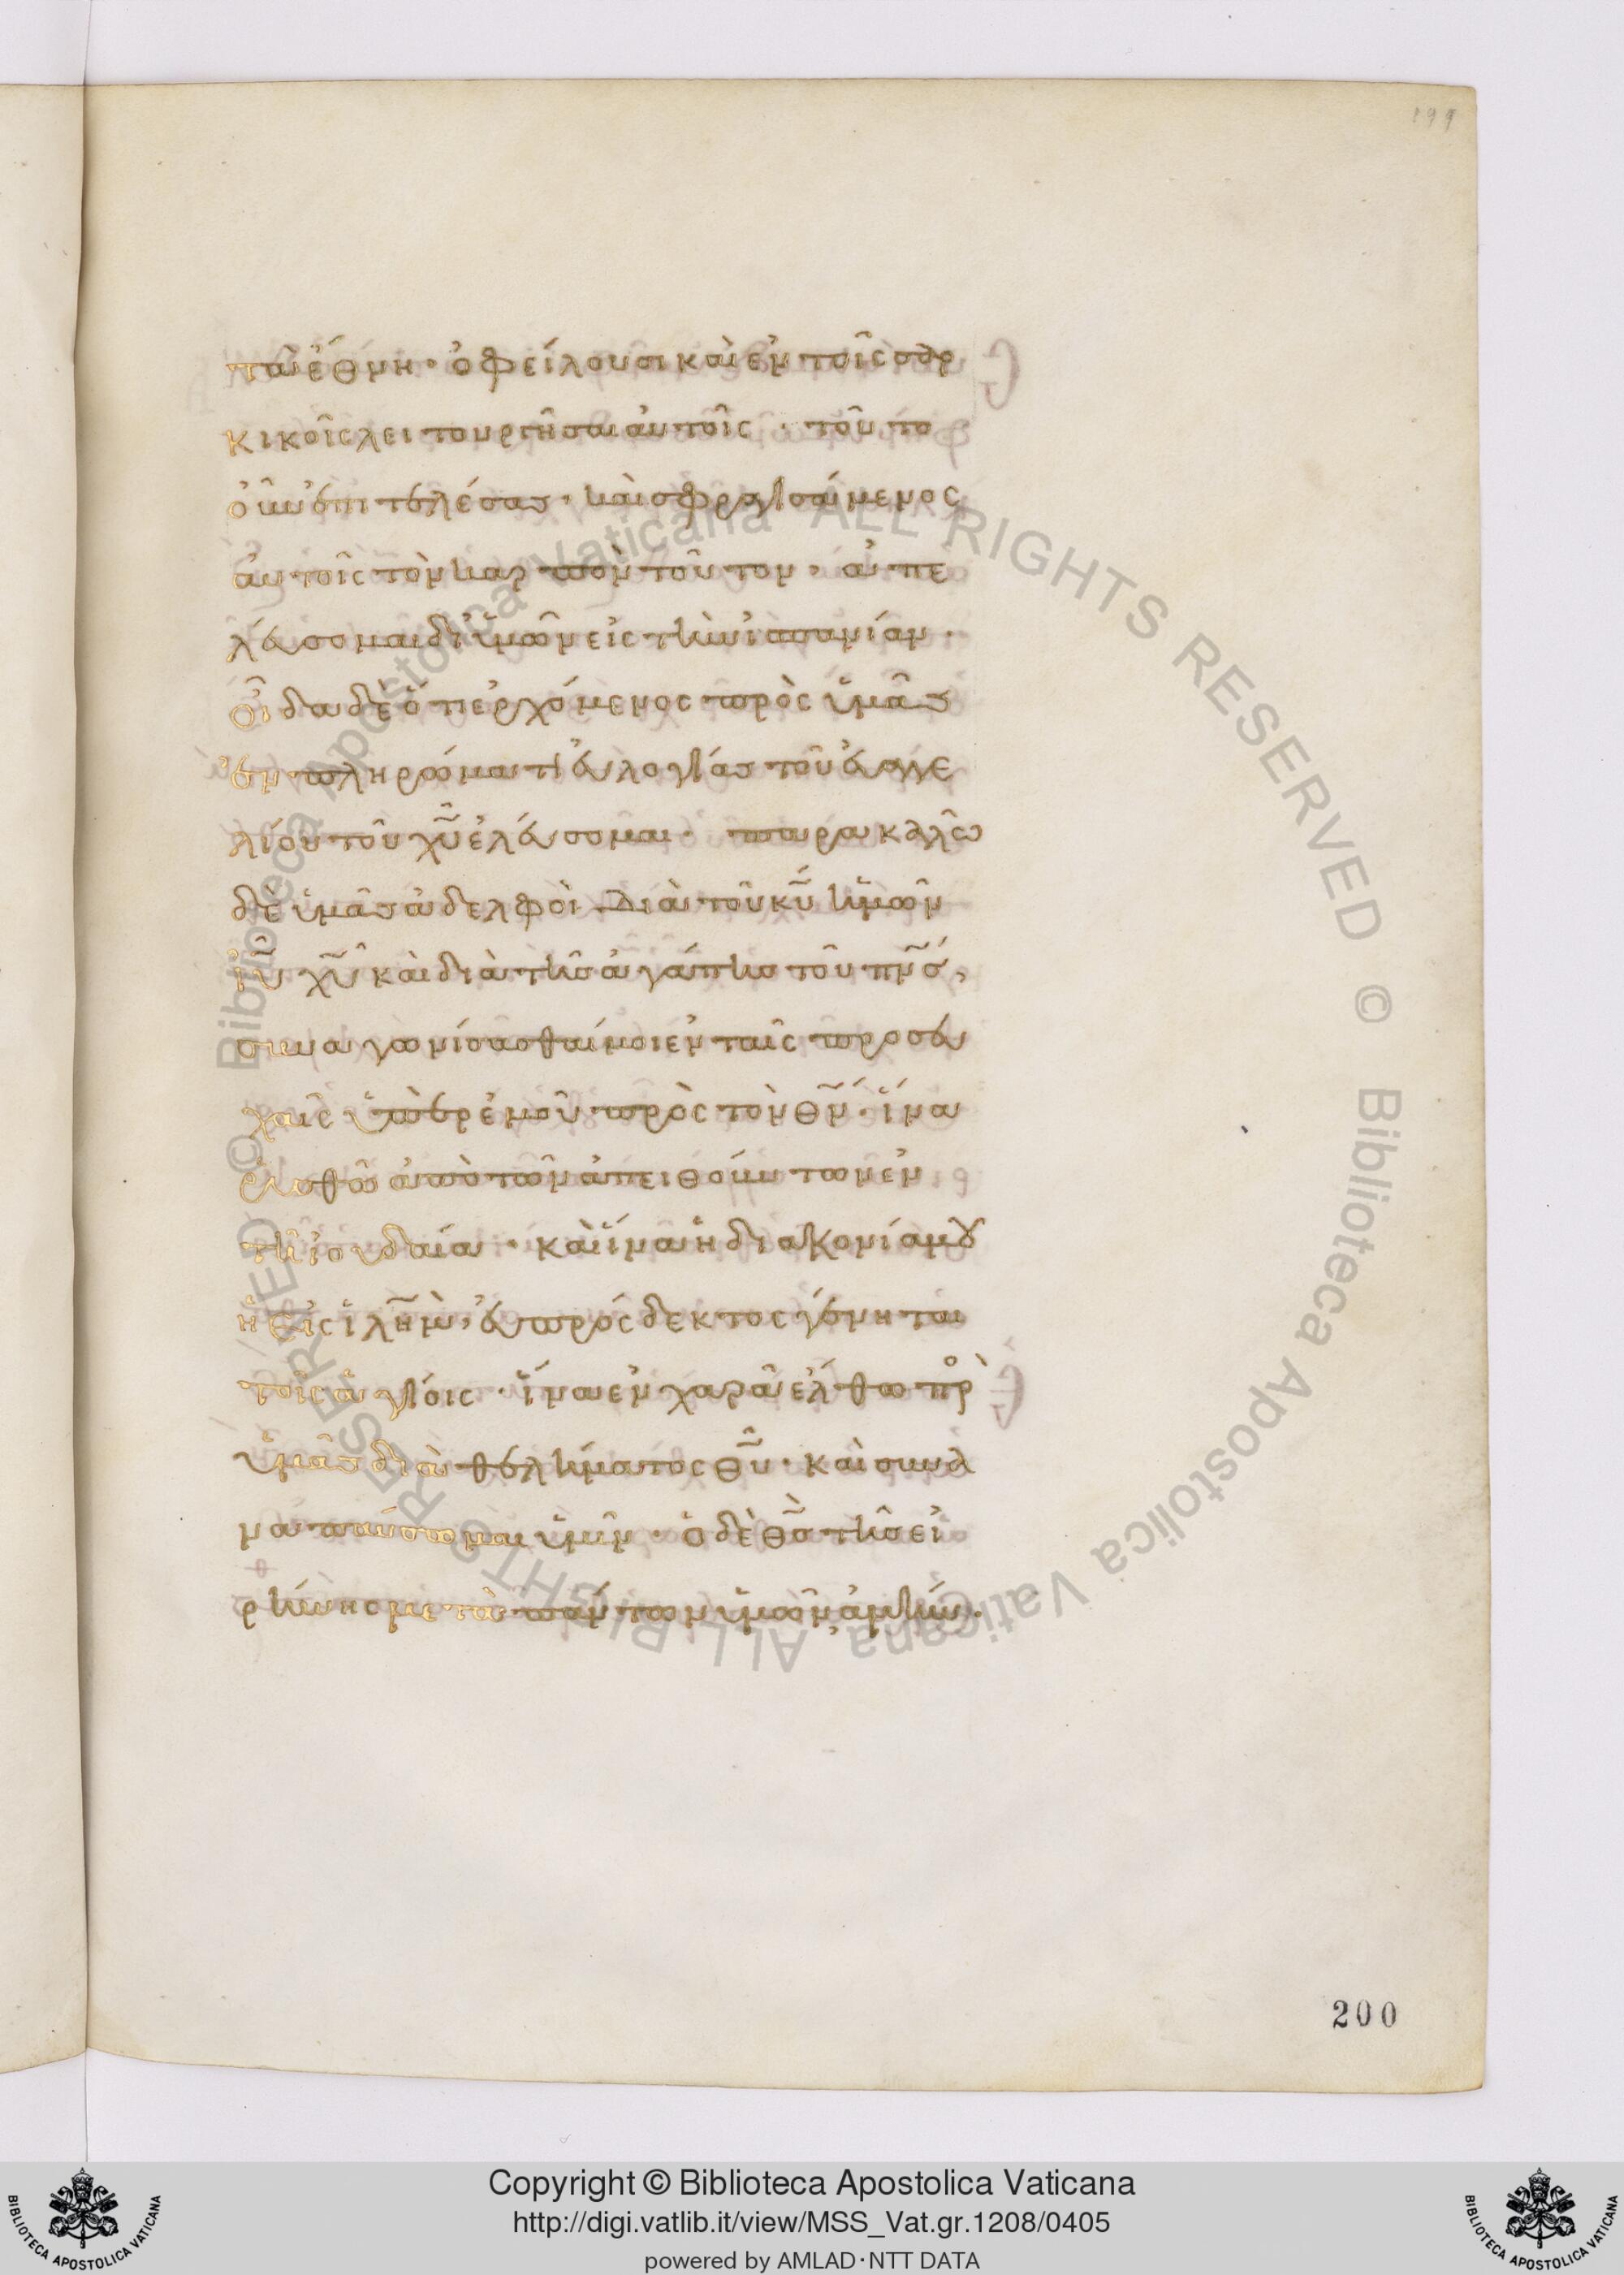 199
τὰ ἔθνη· ὀφείλουσι καὶ ἐν τοῖς σαρ
κικοῖς λειτουργῆσαι αὐτοῖς· τοῦτο
οὖν ἐπιτελέσας· καὶ σφραγισάμενος
αὐτοῖς τὸν καρπὸν τοῦτον· ἀπε
λεύσομαι δι' ὑμῶν εἰς τὴν ἱσπανίαν·
Οἶδα δὲ ὅτι ἐρχόμενος πρὸς ὑμᾶς
ἐν πληρώματι εὐλογίας τοῦ εὐαγγε
λίου τοῦ χῦ ἐλεύσομαι· παρακαλῶ
δὲ ὑμᾶς ἀδελφοὶ διὰ τοῦ κῦ ἡμῶν
ἰῦ χῦ καὶ διὰ τῆς ἀγάπης τοῦ πνς,
συναγωνίσασθαί μοι ἐν ταῖς προσευ
χαῖς ὑπὲρ ἐμοῦ πρὸς τὸν θν· ἵνα
ῥυσθῶ ἀπὸ τῶν ἀπειθούντων ἐν
τῇ ἰουδαία· καὶ ἵνα ἡ διακονία μου
ἡ εἰς ἱλημ, εὐπρόσδεκτος γένηται
τοῖς ἁγίοις· ἵνα ἐν χαρᾶ ἔλθω πρ
ὑμᾶς διὰ θελήματος θῦ· καὶ συνα
ναπαύσωμαι ὑμῖν· ὁ δὲ θς τῆς εἰ
ρήνης μετὰ πάντων ὑμῶν ἀμήν·
200
© Biblioteca Apostolica Vaticana ALL RIGHTS RESERVED © Biblioteca Apostolica Vaticana ALL RIGHTS RESERVED
Copyright © Biblioteca Apostolica Vaticana
http://digi.vatlib.it/view/MSS_Vat.gr.1208/0405
powered by AMLAD·NTT DATA
BIBLIOTECA APOSTOLICA VATICANA
BIBLIOTECA APOSTOLICA VATICANA